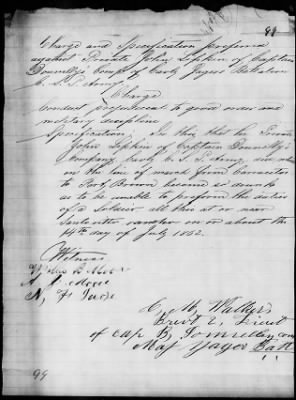 98
Charge and Specification preferred
against Private John Lipkin of Captain
Donnelly's Comp of Cavly Yagers Battalion
C. S. P. Army
Charge
Conduct prejudicial to good order and
military discipline
Specification; In this that he Private
John Lipkin of Captain Donnelly's
Company Cavly C. S. Army, did when
on the line of march from
to Fort Brown become so drunk
as to be unable to perform the duties
of a soldier all this at or near
on or about the
14th day of July 1862.
Witness
C. M. Walker,
Brevt 2, Lieut
of Cap B, Donnelly Com
Maj Yager Batt
99